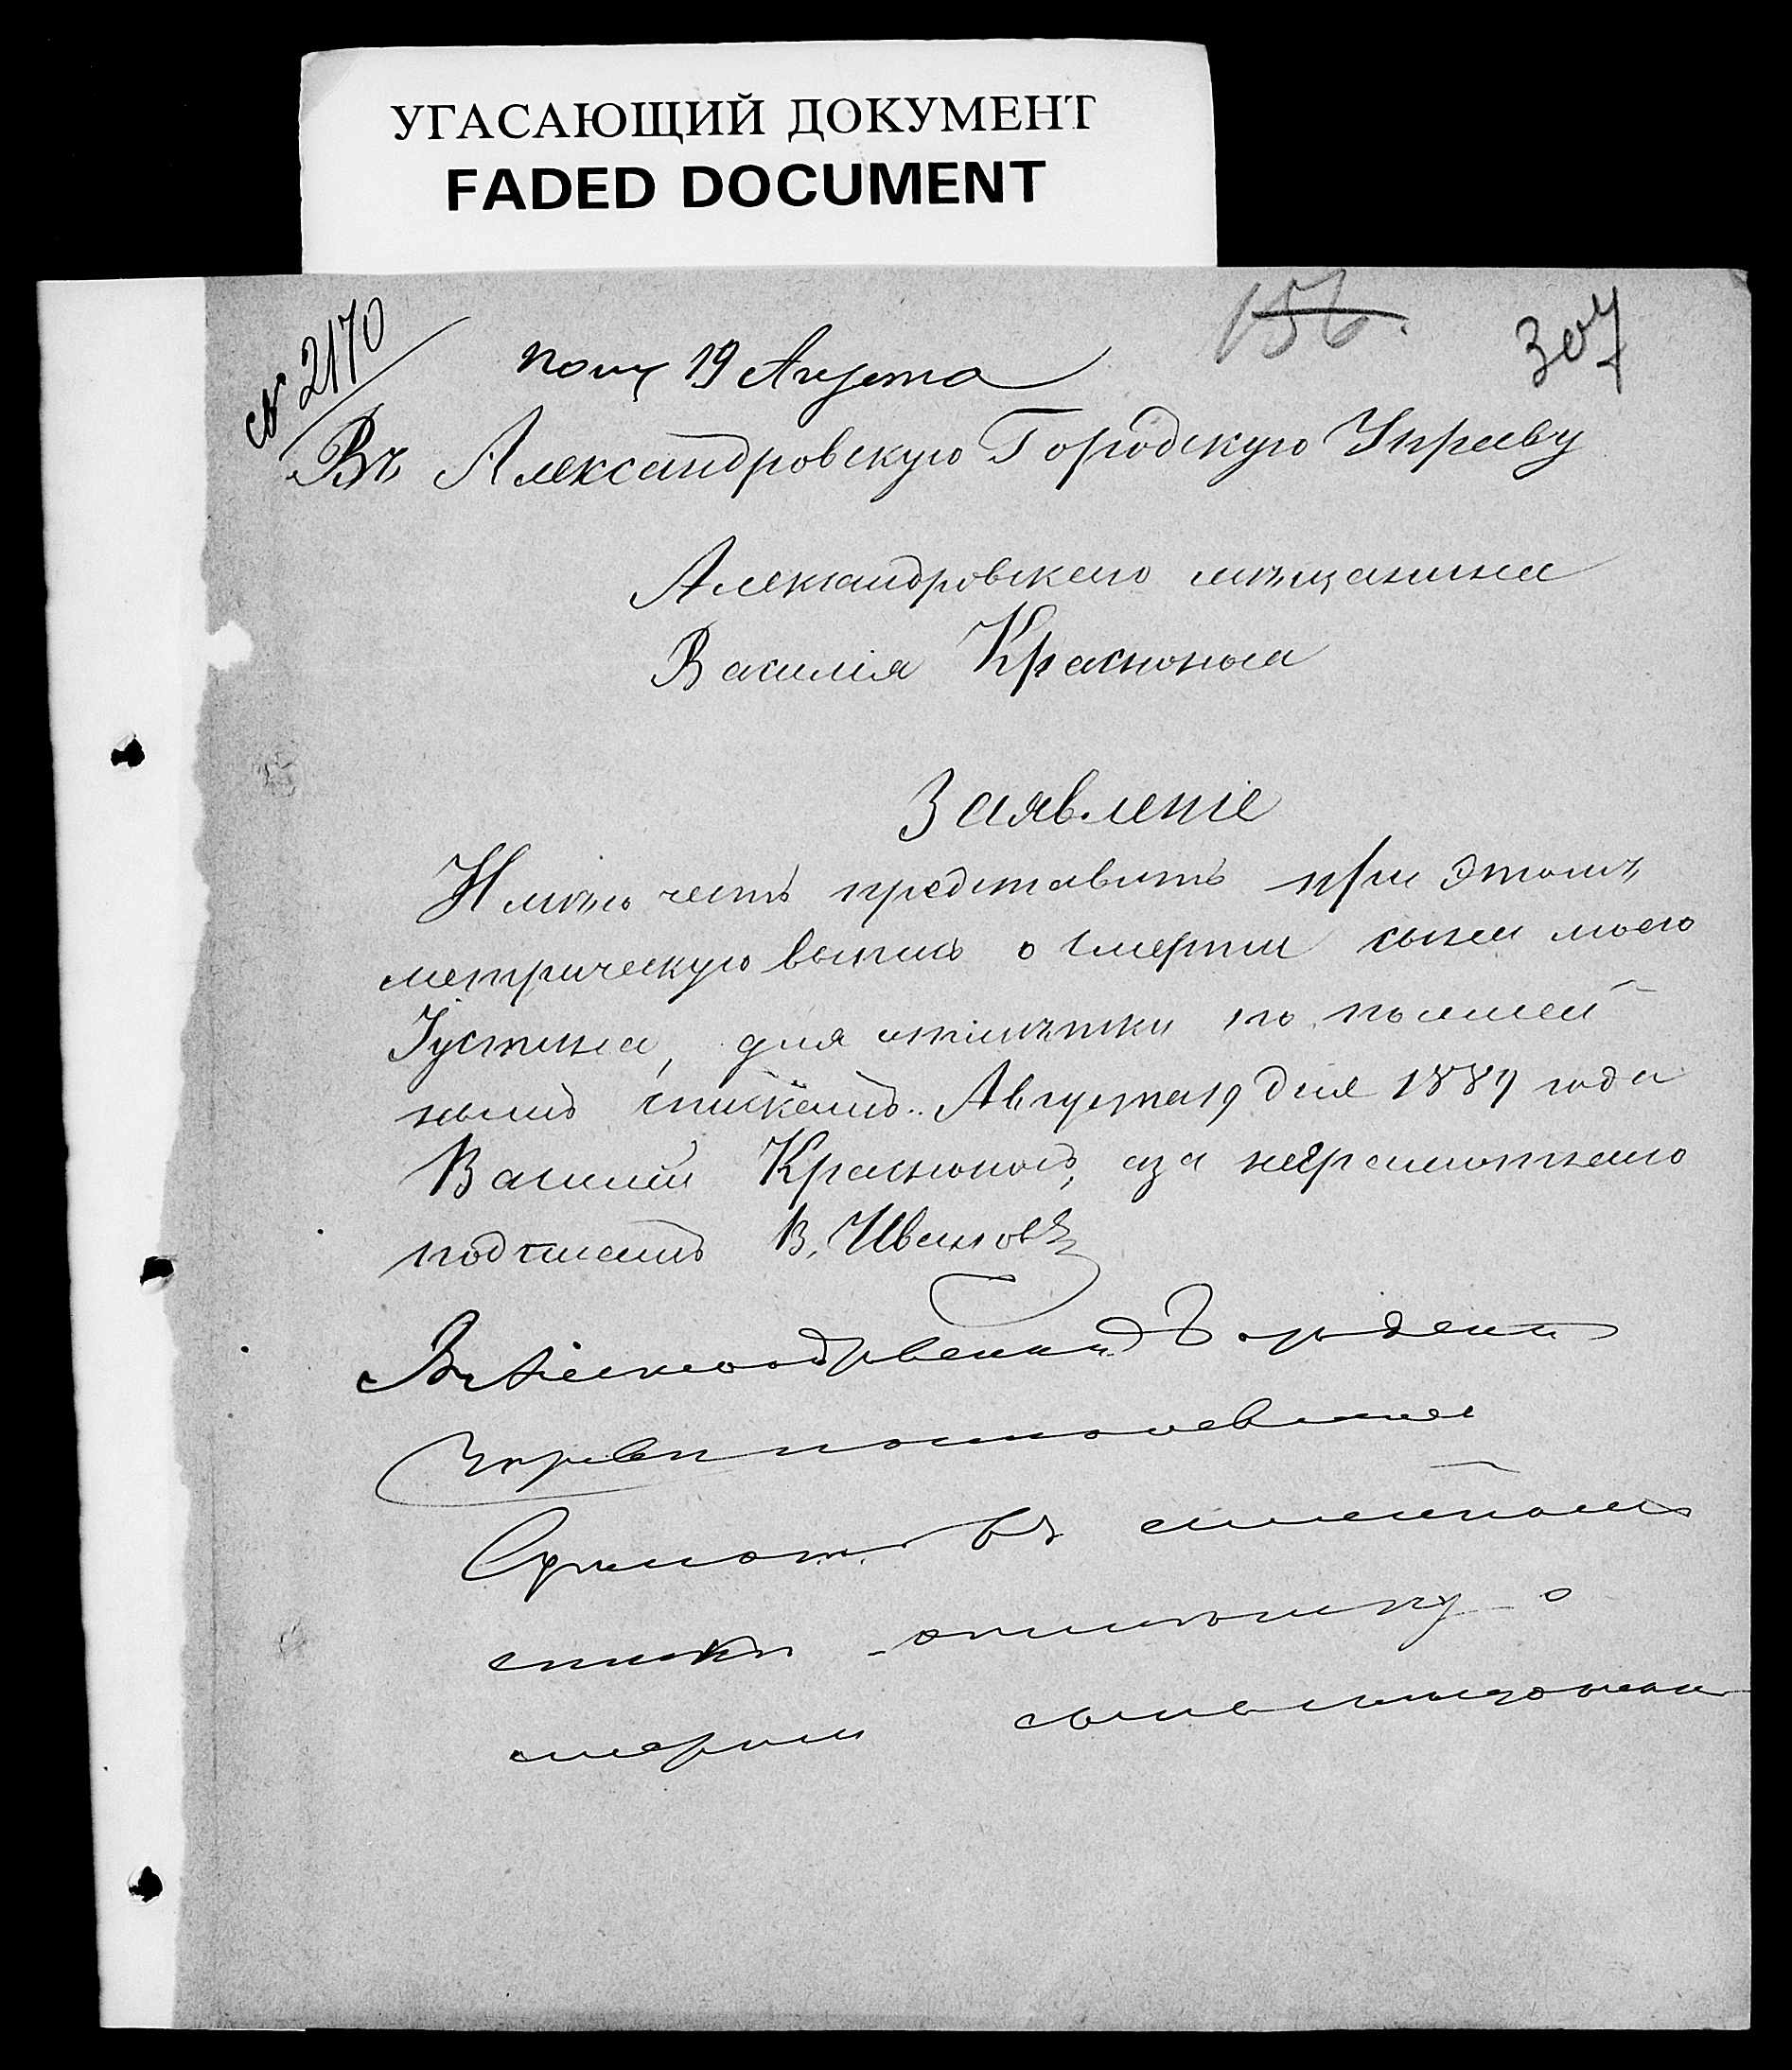 УГАСАЮЩИЙ ДОКУМЕНТ
FADED DOCUMENT
156.
307
№ 2170
Пол. 19 Августа
Въ Александровскую Городскую Управу
Александровскаго мѣщанина
Василія Красноноса
Заявленіе
Имѣю честь представить при этомъ
метрическую выпись о смерти сына моего
Іустина, для отмѣтки по посемей
нымъ спискамъ. Августа 19 дня 1889 года
Василій Краснонось, а за неграмотнаго
подписалъ В. Ивановъ
Въ Александровской Городской
Управѣ постановлено
въ семейномъ
спискѣ отмѣтку о
смерти сына